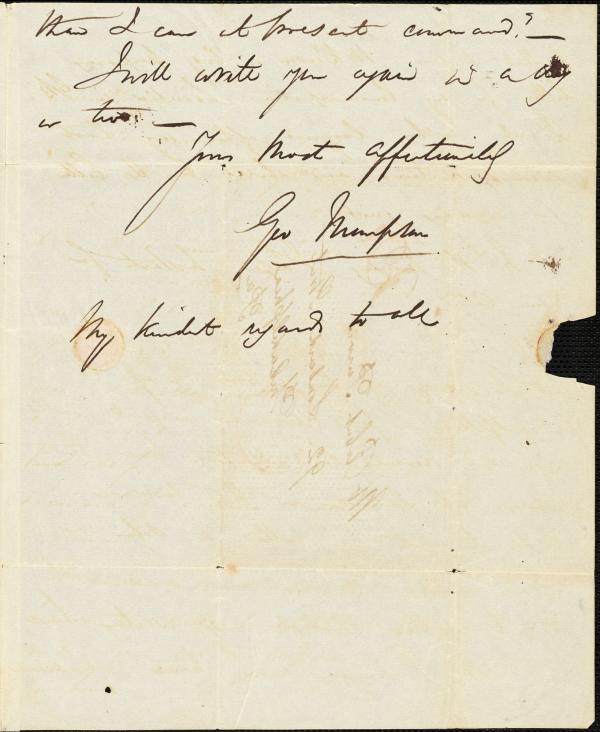 than I can at present command. —
I will write you again in a day
or two —
Yours Most affectionately
Geo Thompson
My kindest regards to all